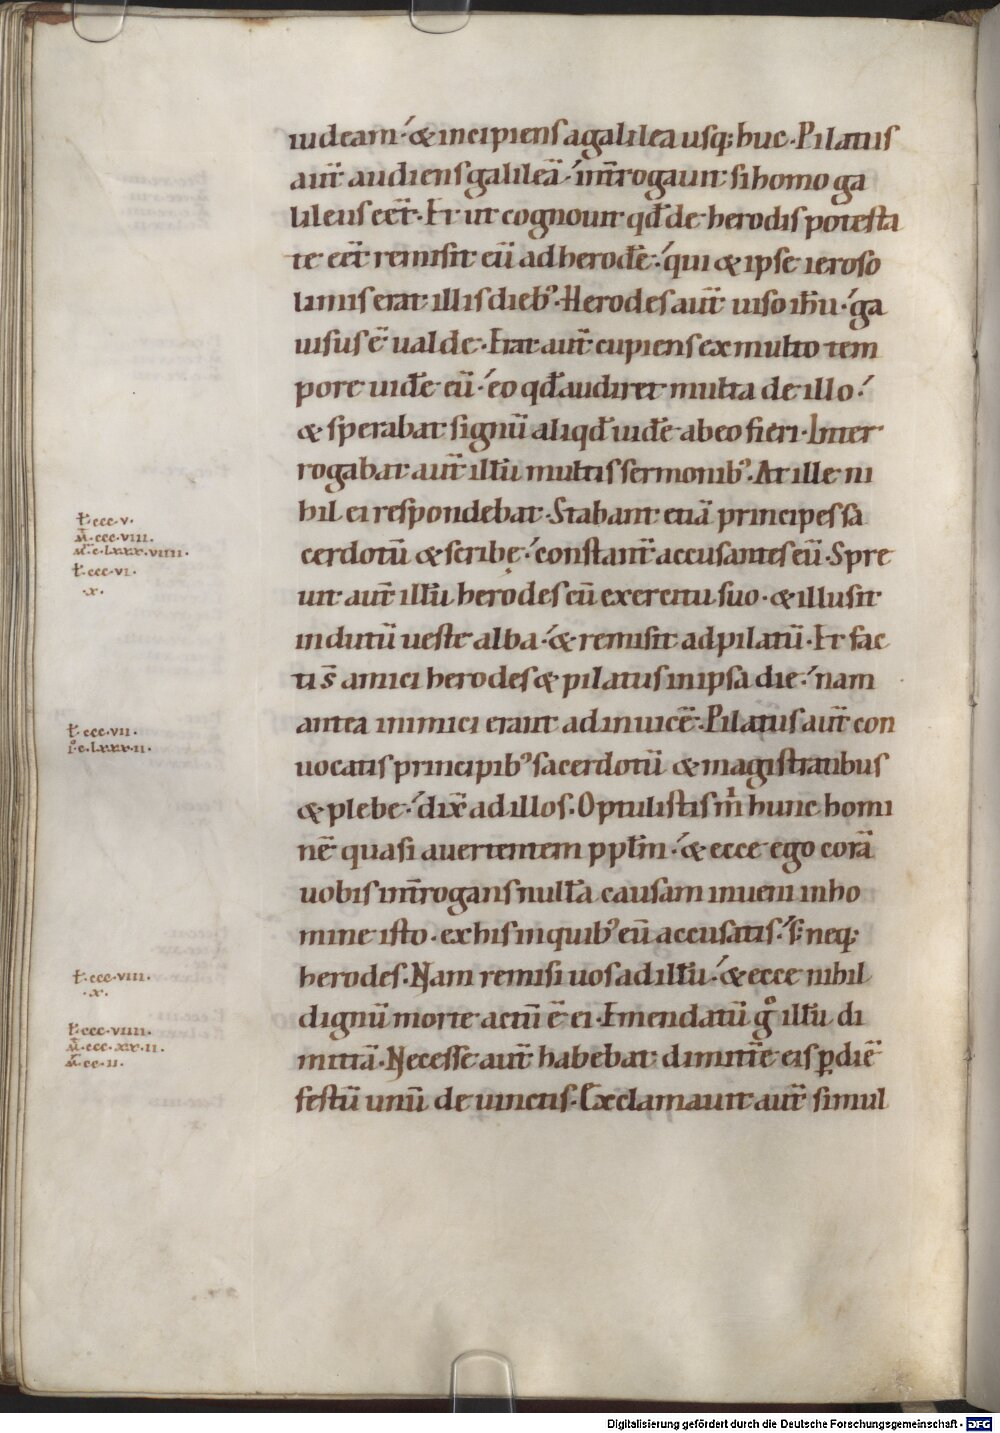 iudeam · & incipiens a galilea usq; huc · Pilatus
aut̄ audiens galileā · int̄rogauit si homo ga
lileus eēt · Et ut cognouit qd̄ de herodis potesta
te eēt remisit eū ad herodē · qui & ipse ieroso
limis erat illis dieb; · Herodes aut̄ uiso ihu̅ · ga
uisus ē ualde · Erat aut̄ cupiens ex multo tem
pore uidē eū · eo qd̄ audiret multa de illo ·
& sperabat signū aliqd̄ uidē ab eo fieri · Inter
rogabat aut̄ illū multis sermonib; · At ille ni
hil ei respondebat · Stabant etiā principes sa
cerdotū & scribę · constant̄ accusantes eū · Spre
uit aut̄ illū herodes cū exercitu suo · & illusit
indutū ueste alba · & remisit ad pilatū · Et fac
ti s̄ amici herodes & pilatus in ipsa die · nam
antea inimici erant ad inuicē · Pilatus aut̄ con
uocatis principib; sacerdotū & magistratibus
& plebe · dix̄ ad illos · Optulistis m̍ hunc homi
nē quasi auertentem ppłm · & ecce ego corā
uobis int̄rogans nullā causam inueni in ho
mine isto · ex his in quib; eū accusatis · s; neq;
herodes · Nam remisi uos ad illū · & ecce nihil
dignū morte actū ē ei · Emendatū gͦ illū di
mittā · Necesse aut̄ habebat dimittē eis ꝑ diē
festū unū de uinctis · Exclamauit aut̄ simul
ł · ccc · v ·
m̄ · ccc · viii ·
m̄ · c · lxxx · viiii ·
ł · ccc · vi ·
· x ·
ł · ccc · vii ·
iͦ · c · lxxx · ii ·
ł · ccc · viii ·
· x ·
ł · ccc · viiii ·
m̄ · ccc · xx · ii ·
m̄ · cc · ii ·
Digitalisierung gefördert durch die Deutsche Forschungsgemeinschaft - DFG